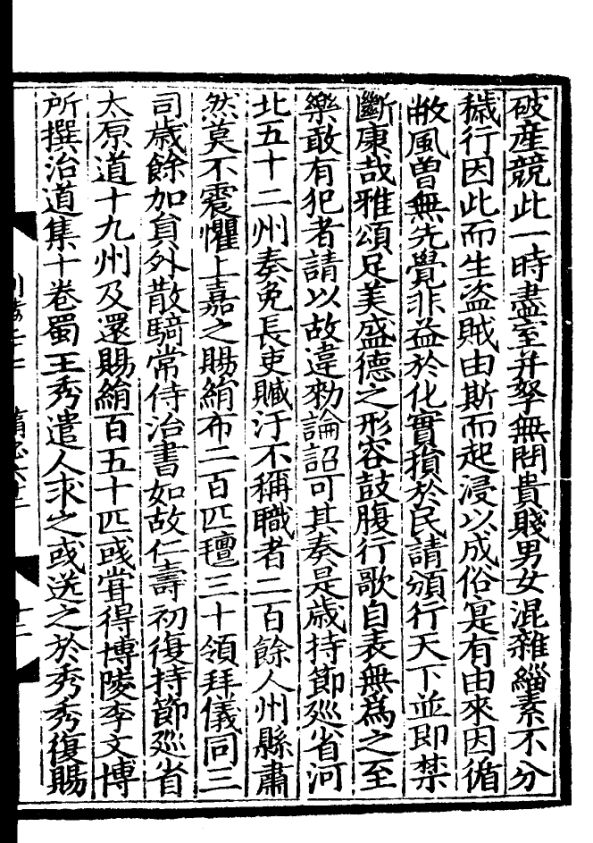 破產競此一時盡室并孥無問貴賤男女混雜緇素不分
穢行因此而生盗賊由斯而起浸以成俗寔有由來因循
敝風曾無先覺非益於化實損於民請頒行天下並即禁
斷康哉雅頌足美盛德之形容鼓腹行歌自表無為之至
樂敢有犯者請以故違勑論詔可其奏是歳持節廵省河
北五十二州奏免長吏贓汙不稱職者二百餘人州縣肅
然莫不震懼上嘉之賜絹布二百匹氊三十領拜儀同三
司歳餘加貟外散騎常侍治書如故仁壽初復持節廵省
太原道十九州及還賜絹百五十匹彧甞得博陵李文博
所撰治道集十卷蜀王秀遣人求之彧送之於秀秀復賜